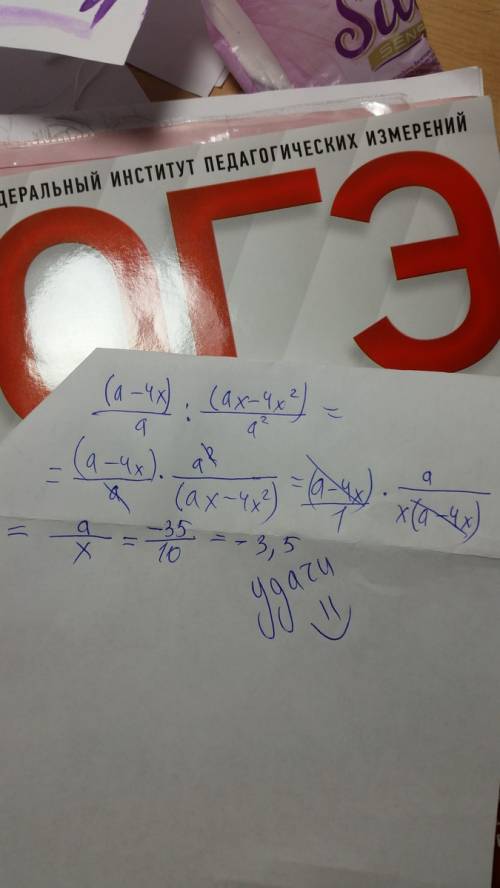 Sa
SENS
ДЕРАЛЬНЫЙ ИНСТИТУТ ПЕДАГОГИЧЕСКИХ ИЗМЕРЕНИЙ
ОГЭ
(a-4x)/a : (ax-4x²)/a² =
= (a-4x)/a · a²/(ax-4x²) = (a-4x)/1 · a/x(a-4x)
= a/x = -35/10 = -3,5
удачи
=)